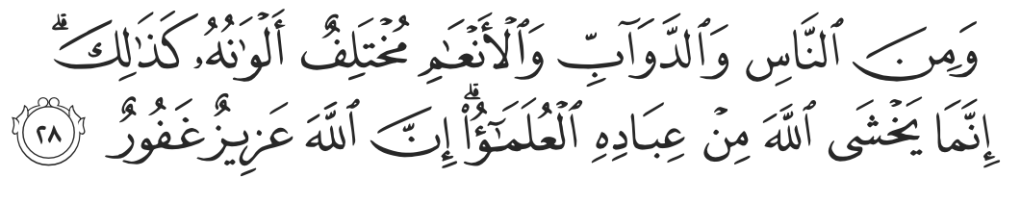 وَمِنَ ٱلنَّاسِ وَٱلدَّوَآبِّ وَٱلۡأَنۡعَٰمِ مُخۡتَلِفٌ أَلۡوَٰنُهُۥ كَذَٰلِكَۗ
إِنَّمَا يَخۡشَى ٱللَّهَ مِنۡ عِبَادِهِ ٱلۡعُلَمَٰٓؤُاْۗ إِنَّ ٱللَّهَ عَزِيزٌ غَفُورٌ ٢٨